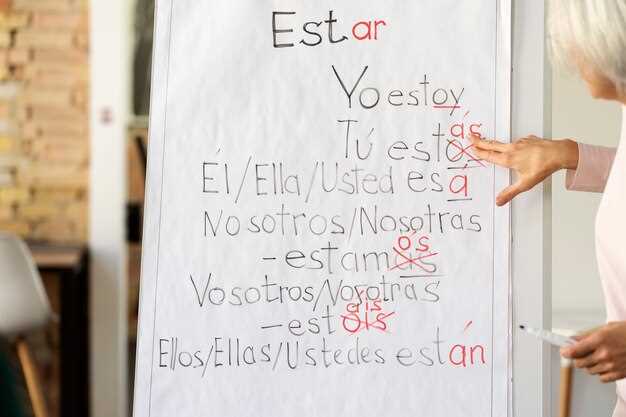 Estar
Yo estoy
ás
Tú esto
Él/Ella/Usted esá
Nosotros/Nosotras
ós
-estamas
Vosotros/Nosotras
áis
-estois
Ellos/Ellas/Ustedes están